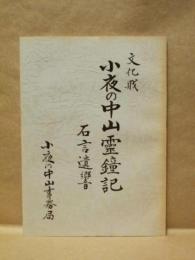 文化財
小夜の中山霊鐘記
石言遺響
小夜の中山書蕃局